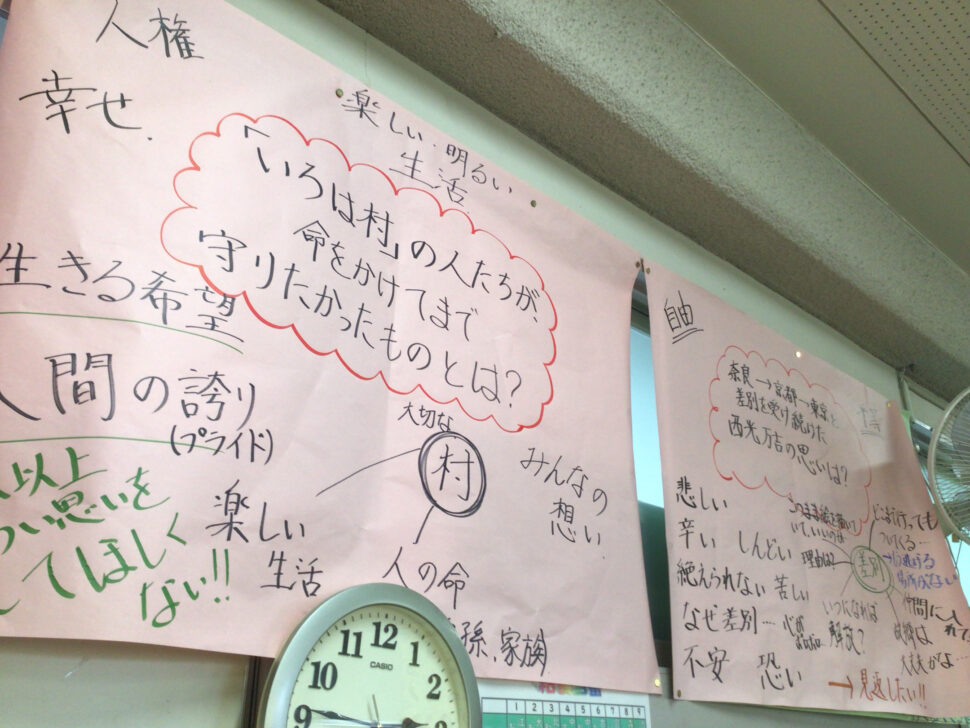 人権
幸せ
楽しい、明るい
生活
「いろは村」の人たちが、
命をかけてまで
守りたかったものとは?
生きる希望
人間の誇り
(プライド)
大切な
村
みんなの
想い
以上
思いを
てほしく
ない!!
楽しい
生活
人の命
孫、家族
自由
奈良→京都→東京と
差別を受け続けた
西光万吉の思いは?
平等
悲しい
辛い しんどい
絶えられない 苦しい
なぜ差別…
不安 恐い
理由は?
いつになれば
解放?
差別
どこまで行っても
ついてくる…
仲間に入れて
→見返したい!!
CASIO
11 12 1
10 2
9
1 2 3 4 5 6 7 8 9